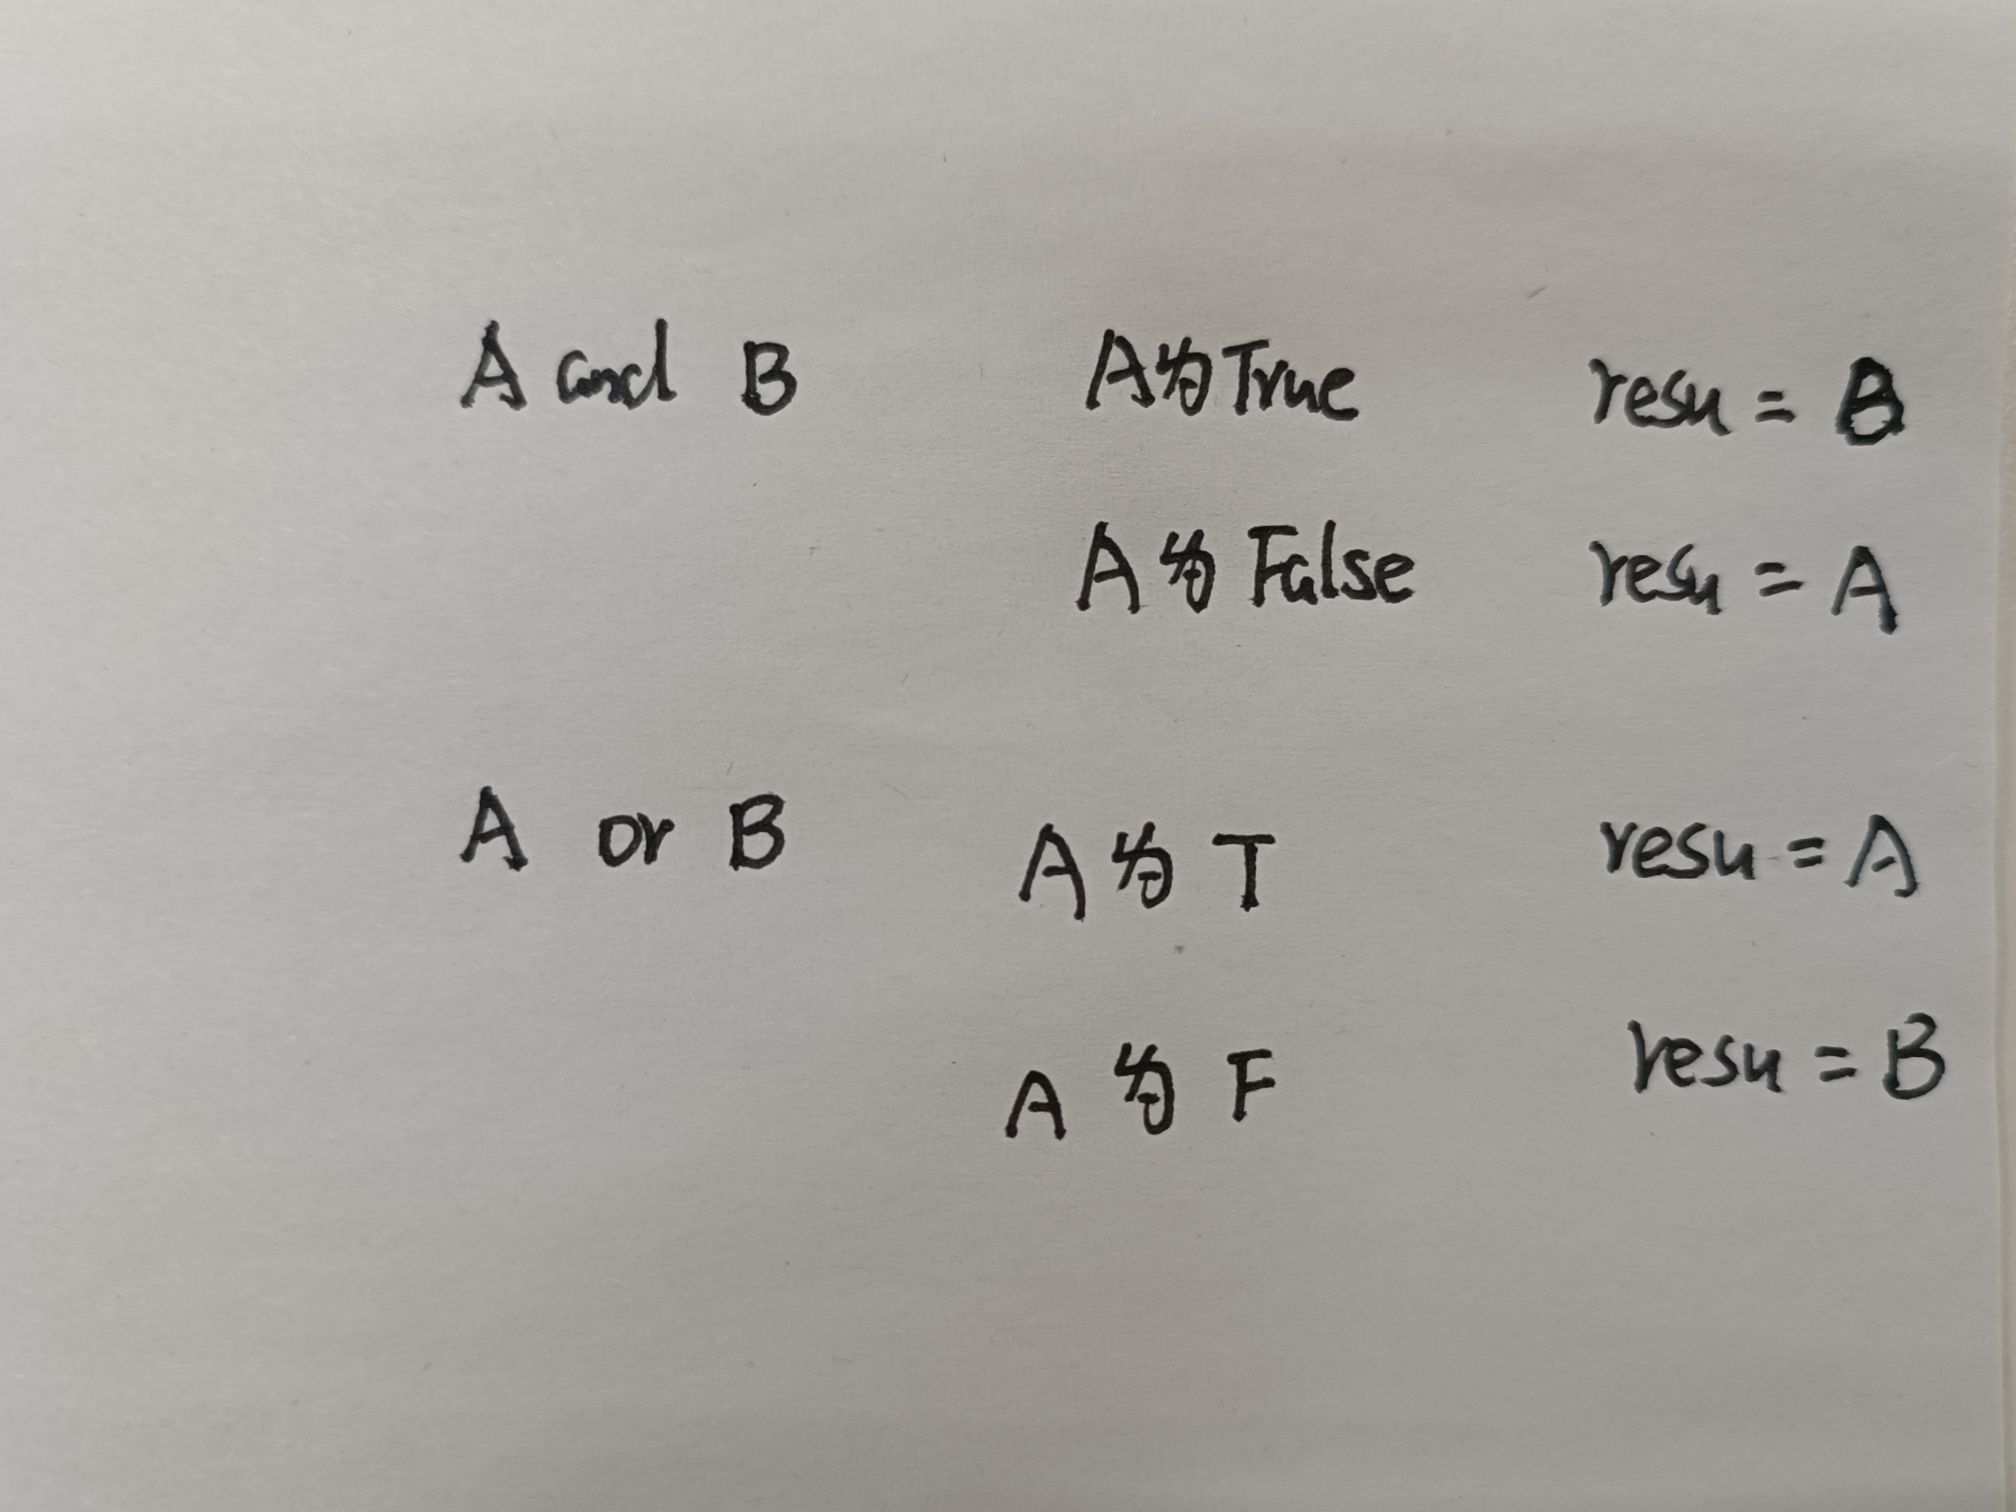 A and B A为True resu = B
A为False resu = A
A or B A为T resu = A
A为F resu = B